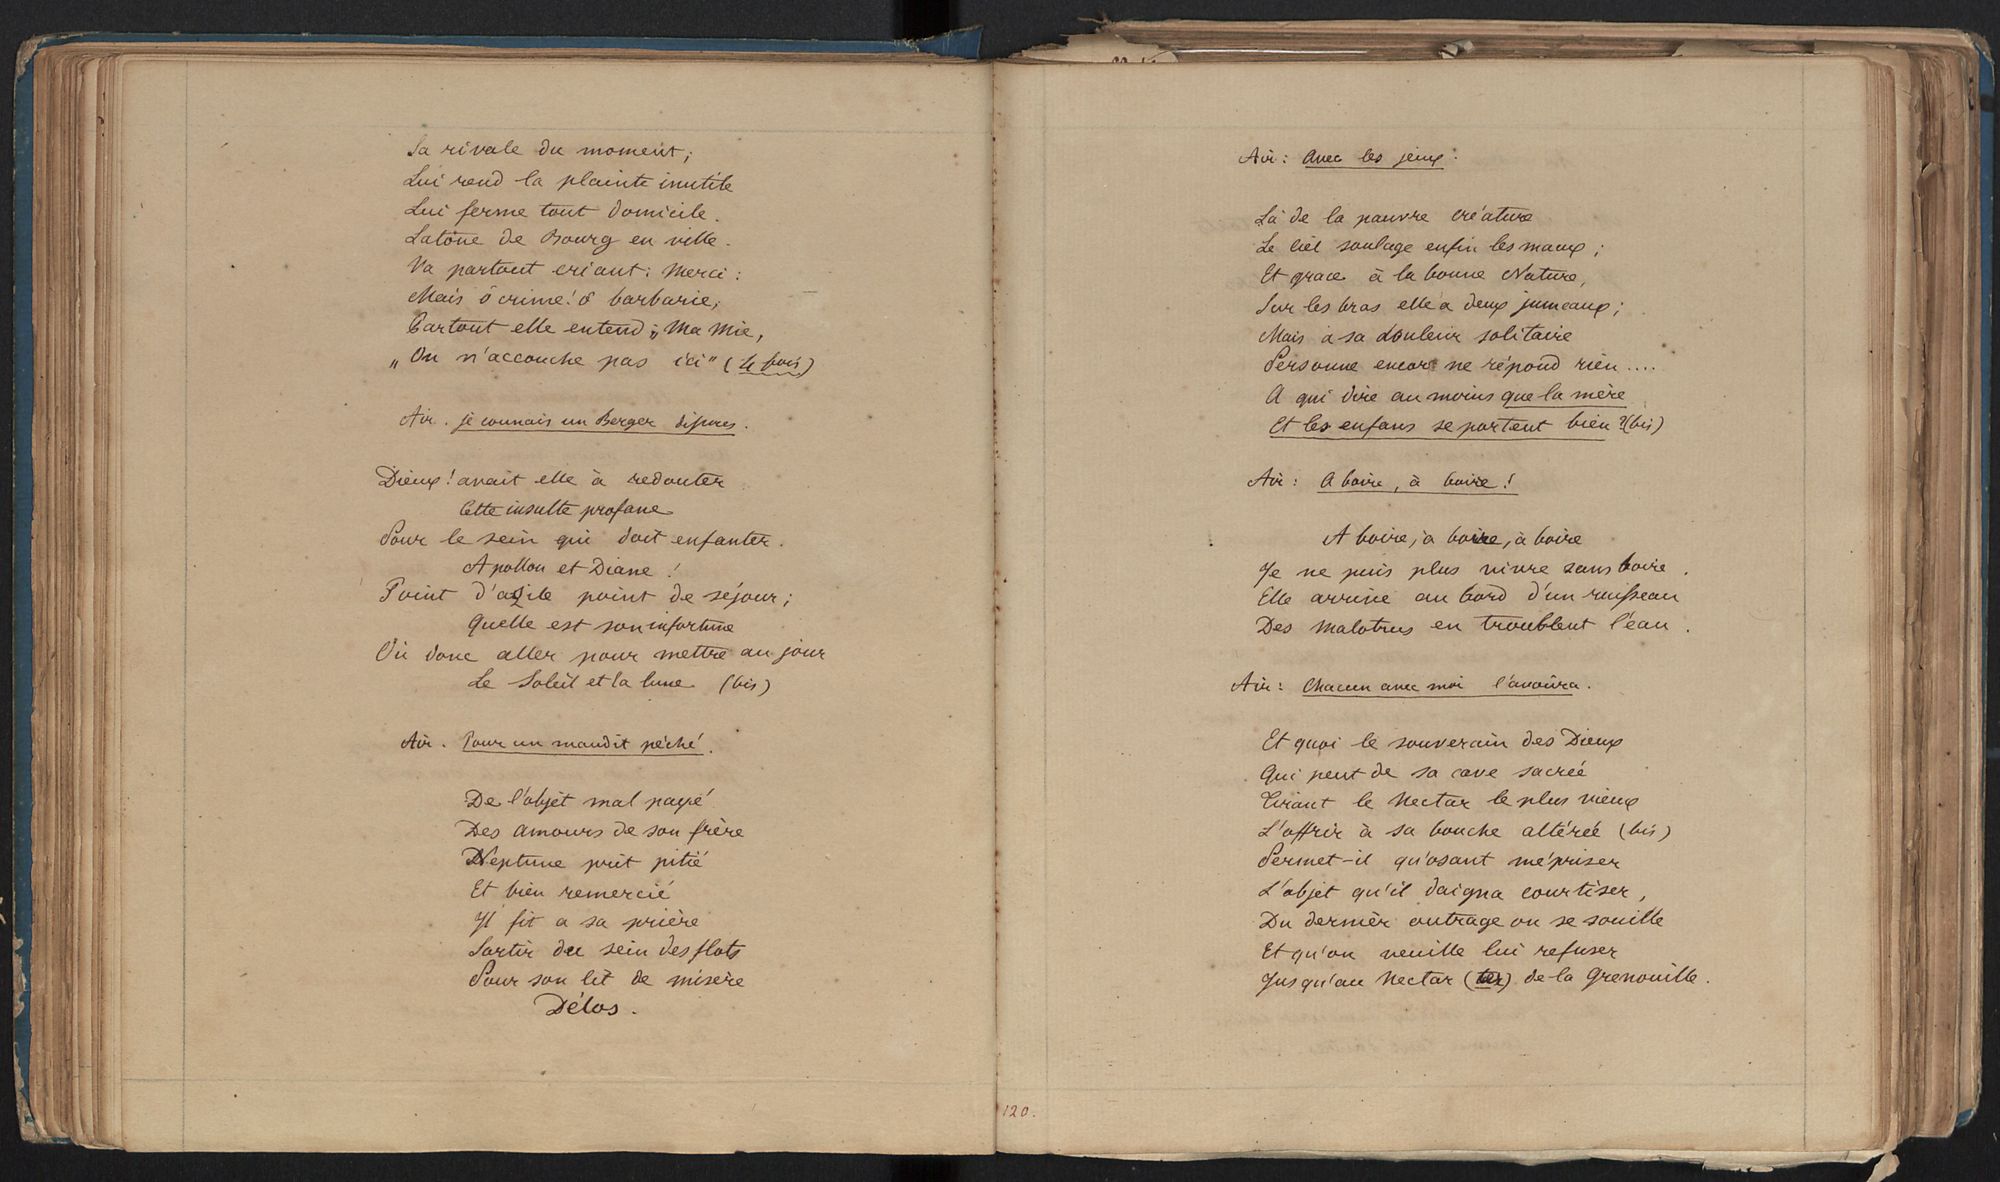 Sa rivale du moment;
Lui rend la plainte inutile
Lui ferme tout domicile.
Latône de Bourg en ville.
Va partout criant: Merci:
Mais ô crime! ô barbarie,
Partout elle entend; „Ma Mie,
„On n'accouche pas ici" (4 fois)
Air. Je connais un Berger
Dieux! avait elle à redouter
Cette insulte profane
Pour le sein qui doit enfanter.
Apollon et Diane!
Point d'asile point de séjour;
Quelle est son infortune
Où donc aller pour mettre au jour
Le Soleil et la lune (bis)
Air. Pour un maudit péché.
De l'objet mal payé
Des amours de son frère
Neptune prit pitié
Et bien remercié
Il fit a sa prière
Sortir du sein des flots
Pour son lit de misère
Délos.
120.
Air: Avec les jeux.
Là de la pauvre créature
Le ciel soulage enfin les maux;
Et grace à la bonne Nature,
Sur les bras elle a deux jumeaux;
Mais à sa douleur solitaire
Personne encor ne répond rien....
A qui dire au moins que la mère
Et les enfans se portent bien? (bis)
Air: A boire, à boire!
A boire, à boire, à boire
Je ne puis plus vivre sans boire.
Elle arrive au bord d'un ruisseau
Des malotrus en troublent l'eau.
Air: Chacun avec moi l'avoûra.
Et quoi le souverain des Dieux
Qui peut de sa cave sacrée
Tirant le Nectar le plus vieux
L'offrir à sa bouche altérée (bis)
Permet-il qu'osant mépriser
L'objet qu'il daigna courtiser,
Du dernier outrage on se souille
Et qu'on veuille lui refuser
Jusqu'au Nectar (ter) de la Grenouille.